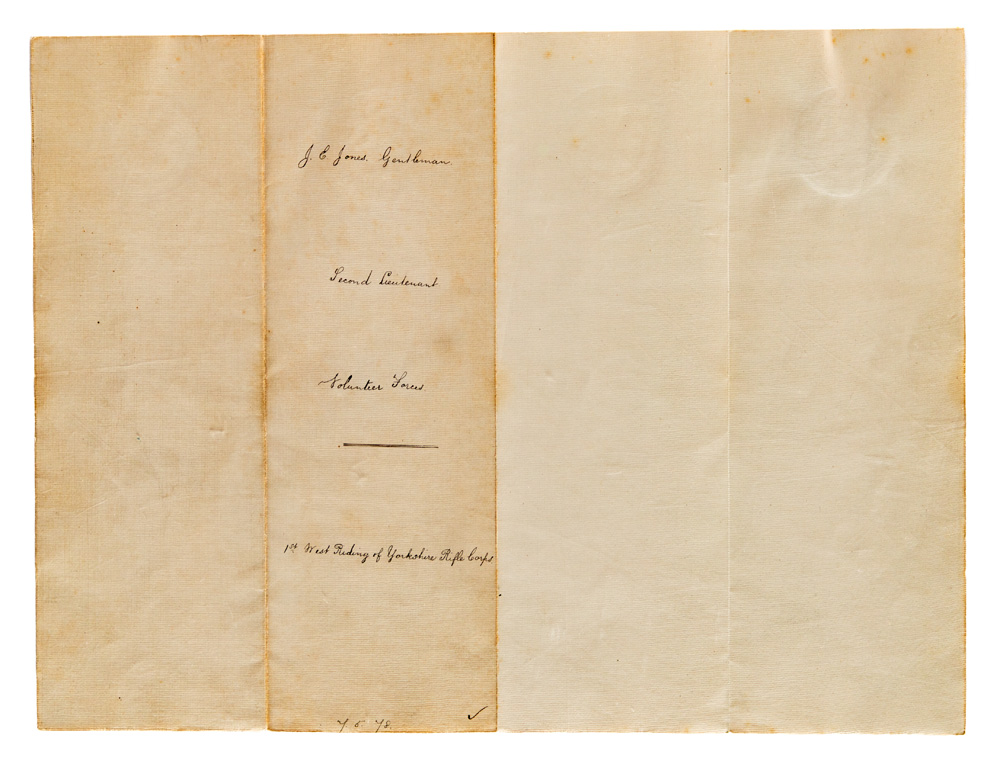 J. E Jones. Gentleman.
Second Lieutenant
Volunteer Forces
1st West Riding of Yorkshire Rifle Corps
7 6 78.